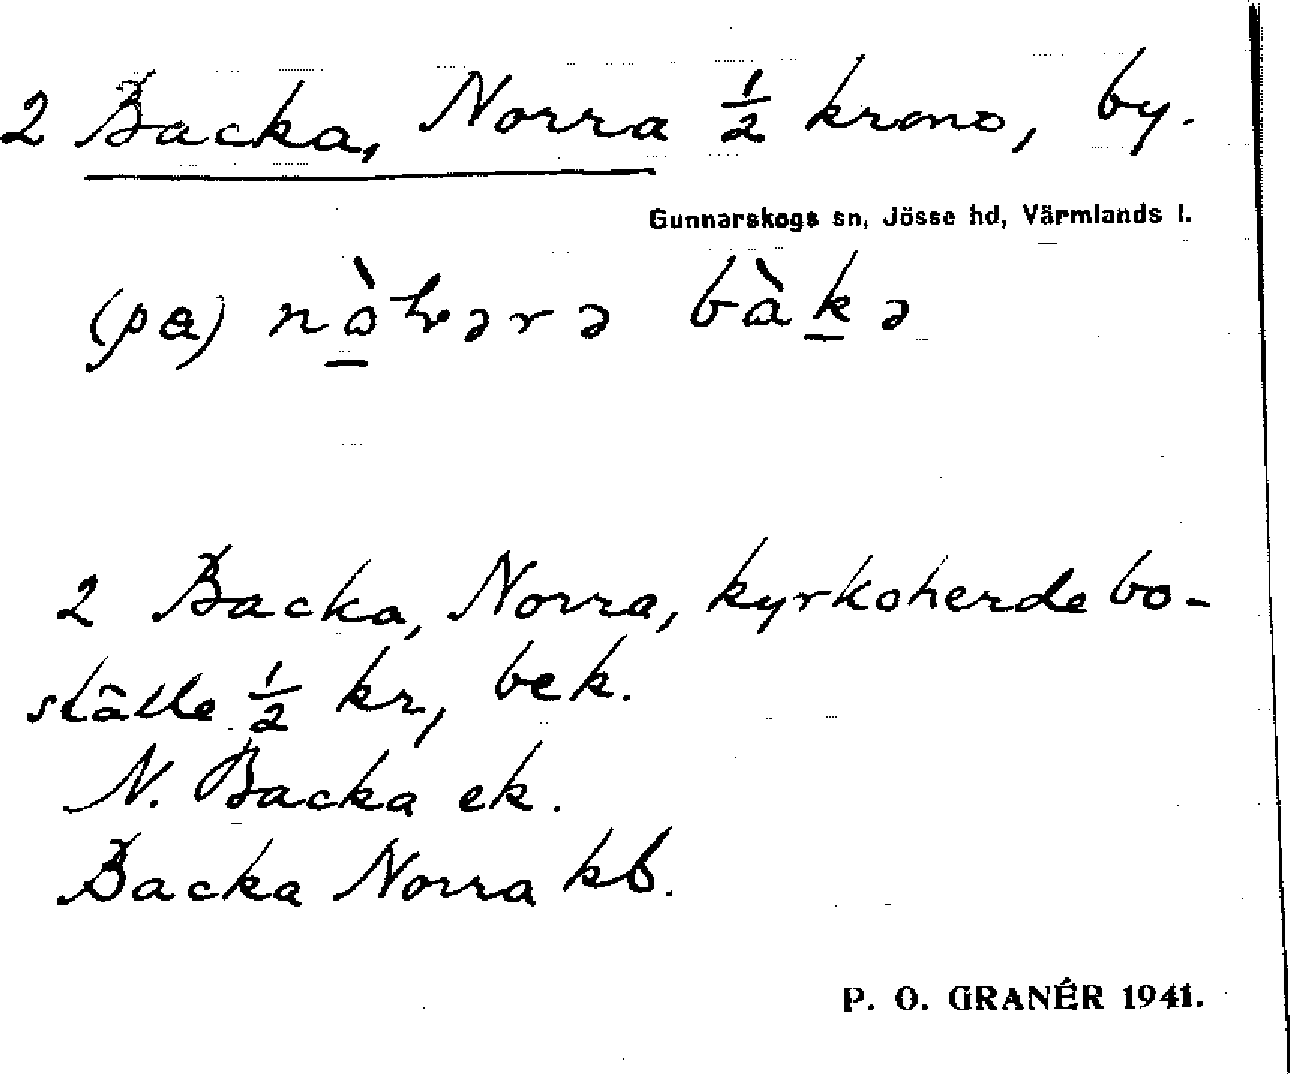 2 Backa, Norra 1/2 krono, by.
Gunnarskogs sn, Jösse hd, Värmlands l.
(pa) bàkə
2 Backa, Norra, kyrkoherdebo-
ställe 1/2 kr, bek.
N. Backa ek.
Backa Norra kb.
P. O. GRANÉR 1941.